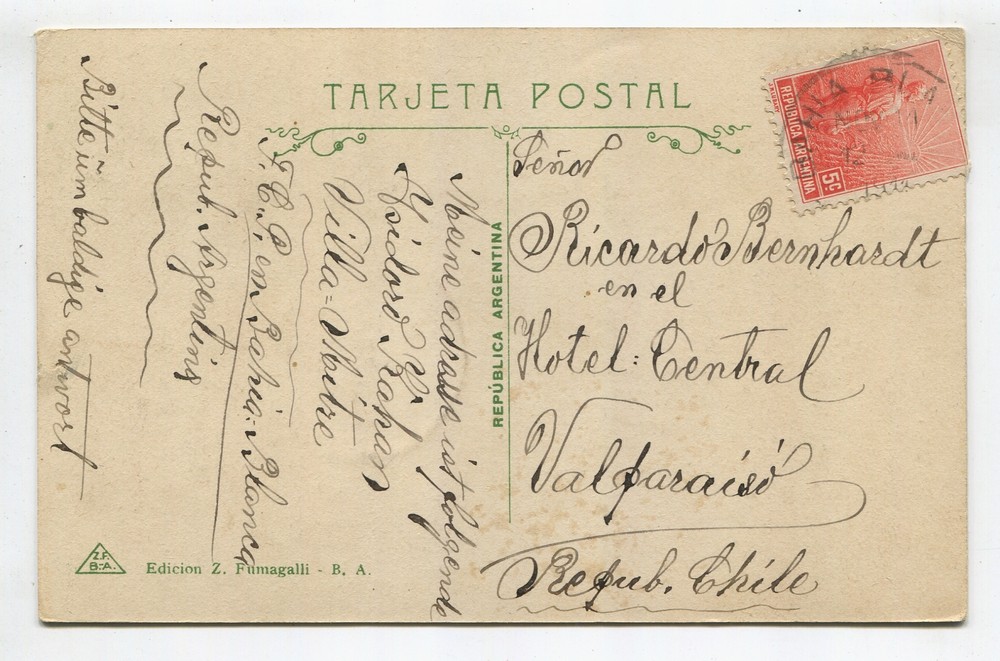 TARJETA POSTAL
REPÚBLICA ARGENTINA
5c
REPÚBLICA ARGENTINA
Señor
Ricardo Bernhardt
en el
Hotel: Central
Valparaiso
Repub. Chile
Meine adresse ist folgende
Isidoro Kahan
Villa=Mitre
F.C.P. en Bahia-Blanca
Repub. Argentina
Bitte üm baldige antwort
Z.F.
B.-A.
Edicion Z. Fumagalli - B. A.